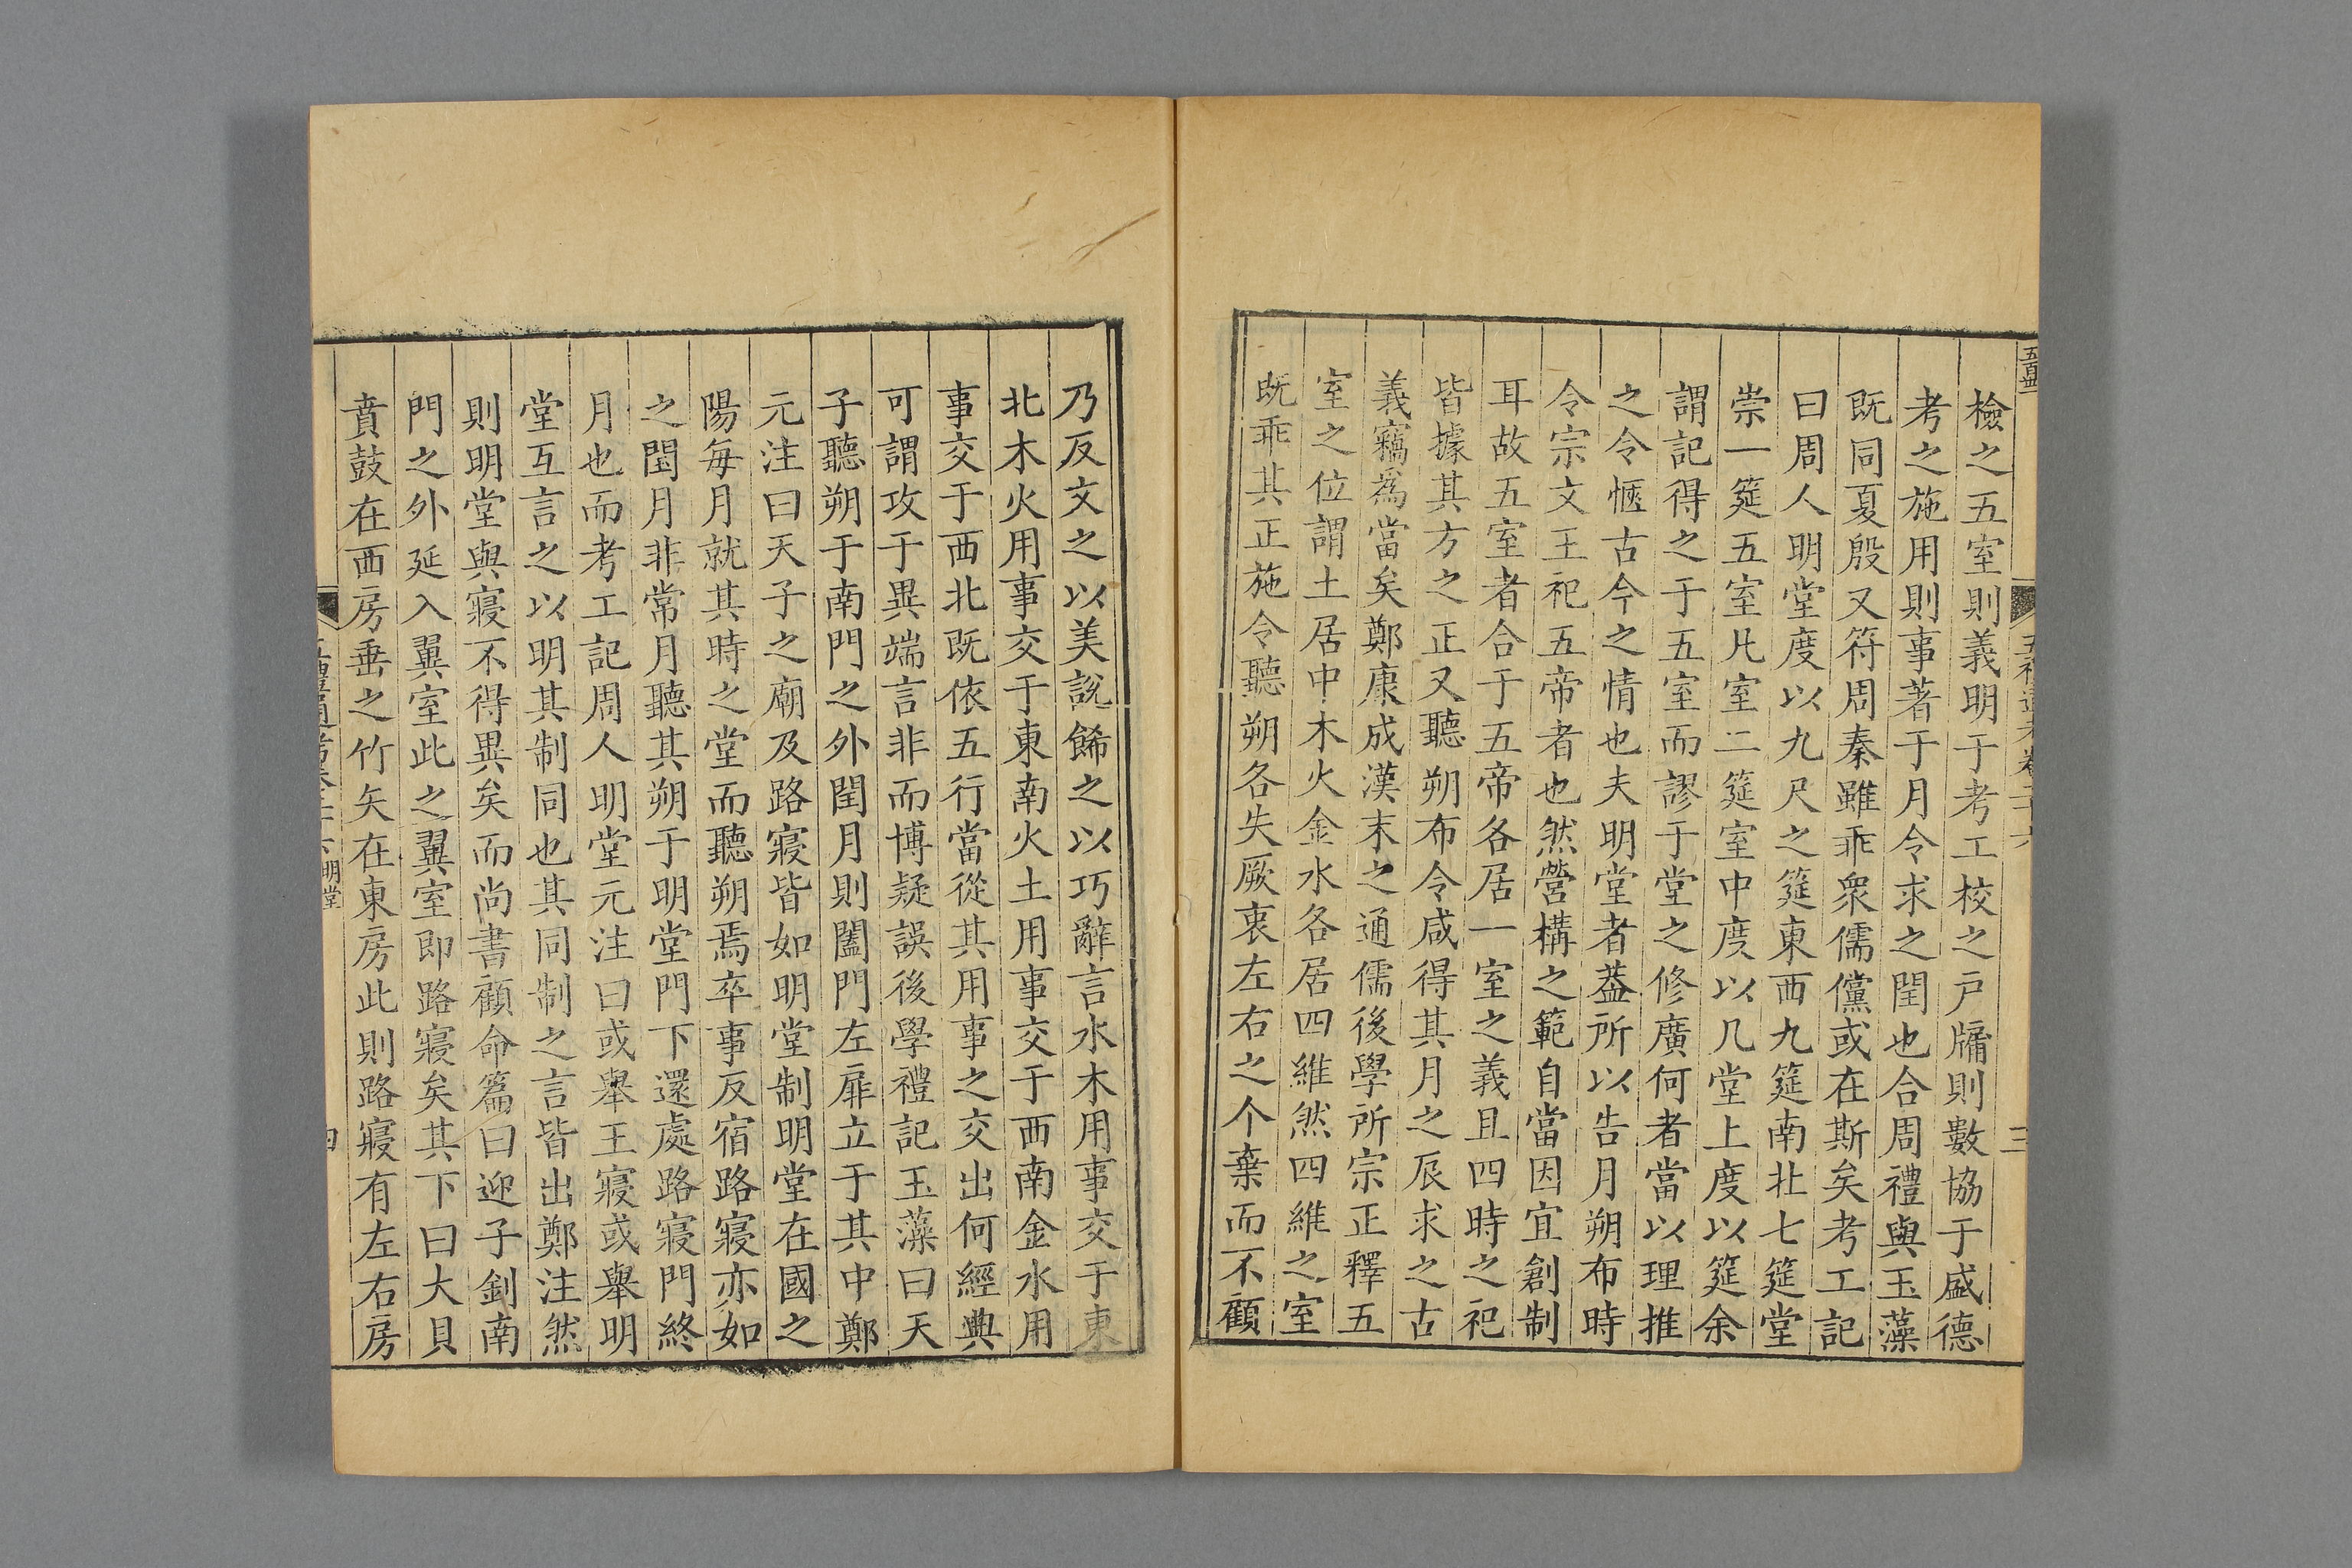 檢之五室則義明于考工校之戸牖則數協于盛德
考之施用則事著于月令求之閏也合周禮與玉藻
既同夏殷又符周秦雖乖衆儒儻或在斯矣考工記
曰周人明堂度以九尺之筵東西九筵南北七筵堂
崇一筵五室凡室二筵室中度以几堂上度以筵余
謂記得之于五室而謬于堂之修廣何者當以理推
之令愜古今之情也夫明堂者葢所以告月朔布時
令宗文王祀五帝者也然營構之範自當因宜創制
耳故五室者合于五帝各居一室之義且四時之祀
皆據其方之正又聽朔布令咸得其月之辰求之古
義竊爲當矣鄭康成漢末之通儒後學所宗正釋五
室之位謂土居中木火金水各居四維然四維之室
既乖其正施令聽朔各失厥衷左右之个棄而不顧
乃反文之以美說餙之以巧辭言水木用事交于東
北木火用事交于東南火土用事交于西南金水用
事交于西北既依五行當從其用事之交出何經典
可謂攻于異端言非而博疑誤後學禮記玉藻曰天
子聽朔于南門之外閏月則闔門左扉立于其中鄭
元注曰天子之廟及路寢皆如明堂制明堂在國之
陽每月就其時之堂而聽朔焉卒事反宿路寢亦如
之閏月非常月聽其朔于明堂門下還處路寢門終
月也而考工記周人明堂元注曰或舉王寢或舉明
堂互言之以明其制同也其同制之言皆出鄭注然
則明堂與寢不得異矣而尚書顧命篇曰迎子釗南
門之外延入翼室此之翼室即路寢矣其下曰大貝
賁鼓在西房垂之竹矢在東房此則路寢有左右房
明堂